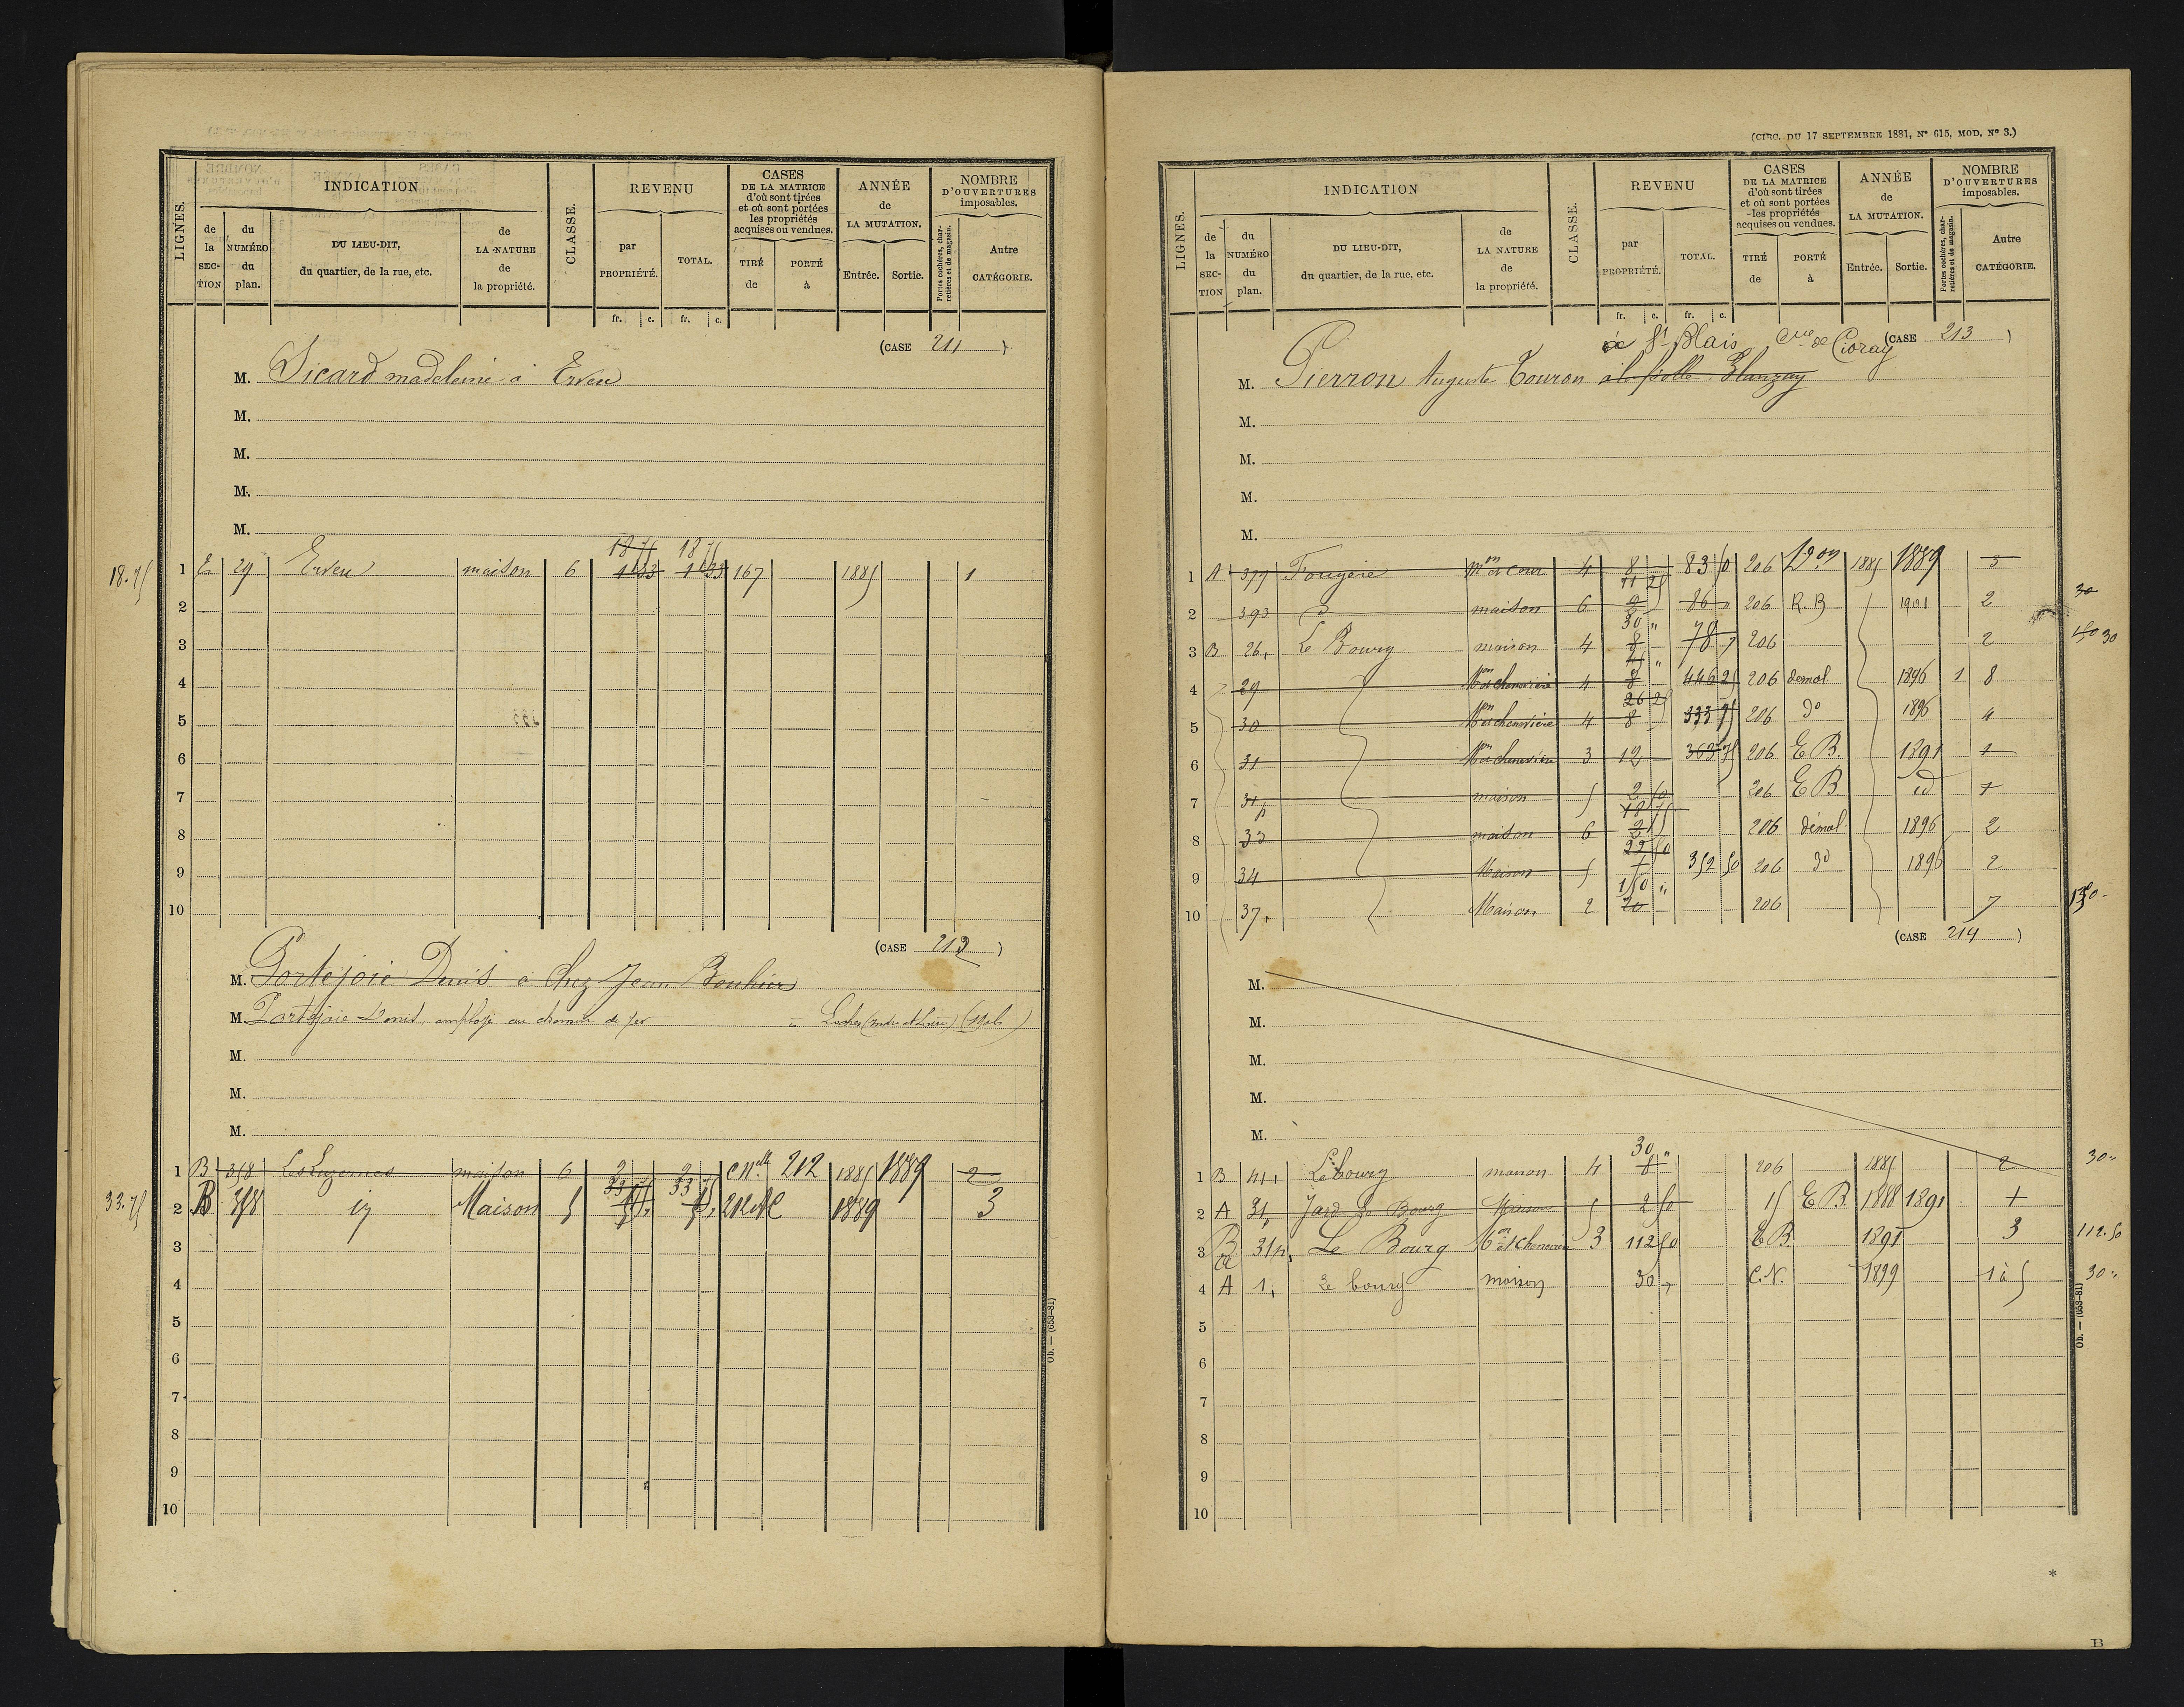 LIGNES.
INDICATION
CLASSE.
REVENU
CASES
DE LA MATRICE
d'où sont tirées
et où sont portées
les propriétés
acquises ou vendues.
ANNÉE
de
LA MUTATION.
NOMBRE
D'OUVERTURES
imposables.
de la SECTION
du NUMÉRO du plan.
DU LIEU-DIT,
du quartier, de la rue, etc.
de LA NATURE de la propriété.
par PROPRIÉTÉ.
TOTAL.
TIRÉ de
PORTÉ à
Entrée.
Sortie.
Portes cochères, charretières et de magasin.
Autre CATÉGORIE.
fr. c. fr. c.
(CASE 211 )
M. Sicard madeleine à Erveu
M.
M.
M.
M.
18 75 18 75
18.75 1 E 29 Erveu maison 6 1 33 1 33 167 1885 1
2
3
4
5
6
7
8
9
10
(CASE 212 )
M. Portejoie Denis à Chez Jean Bouhier
M. Portejoie Denis, employé au chemin de fer à Loches (Indre et Loire) (1906)
M.
M.
M.
1 B 358 Les Luzernes maison 6 2 2 C Nelle 212 1885 1889 2
33 75 33 75
33.75 2 B 358 id Maison 5 212 1889 3
3
4
5
6
7
8
9
10
Ob. — (653-81)
(CIRC. DU 17 SEPTEMBRE 1881, N° 615, MOD. N° 3.)
LIGNES.
INDICATION
CLASSE.
REVENU
CASES
DE LA MATRICE
d'où sont tirées
et où sont portées
les propriétés
acquises ou vendues.
ANNÉE
de
LA MUTATION.
NOMBRE
D'OUVERTURES
imposables.
de la SECTION
du NUMÉRO du plan.
DU LIEU-DIT,
du quartier, de la rue, etc.
de LA NATURE de la propriété.
par PROPRIÉTÉ.
TOTAL.
TIRÉ de
PORTÉ à
Entrée.
Sortie.
Portes cochères, charretières et de magasin.
Autre CATÉGORIE.
fr. c. fr. c.
(CASE 213 )
à St Blais Cne de Civray
M. Pierron Auguste Touron Blanzay
M.
M.
M.
M.
1 A 379 Fougère Mon et Cour 4 8 83 50 206 Don 1885 1889 3
11 25
2 393 do maison 6 2 86 206 R. B 1901 2 30
30 "
3 B 26 Le Bourg maison 4 8 78 206 2 30
45 "
4 29 Mon et chenevière 4 8 446 25 206 demol 1896 1 8
26 25
5 30 Mon et chenevière 4 8 333 75 206 do 1896 4
6 31 Mon et chenevière 3 12 363 75 206 E B. 1891 1
7 31p maison 5 2 50 206 E B id 1
18 75
8 33 maison 6 2 206 démol 1896 2
22 50
9 34 Maison 5 352 50 206 do 1896 2
150 "
10 37 Maison 2 20 206 7
(CASE 214 )
M.
M.
M.
M.
M.
30 "
1 B 41 Le bourg maison 4 8 206 1885 2 30 "
2 A 31 Jard Le Bourg Maison 5 2 50 15 E B 1888 1891 1
3 B 31p Le Bourg Mon et Chenevière 3 112 50 E B. 1891 3 112.50
4 A 1 Le bourg maison 30 C. N. 1899 1 à 5 30 "
5
6
7
8
9
10
Ob. — (653-81)
*
B